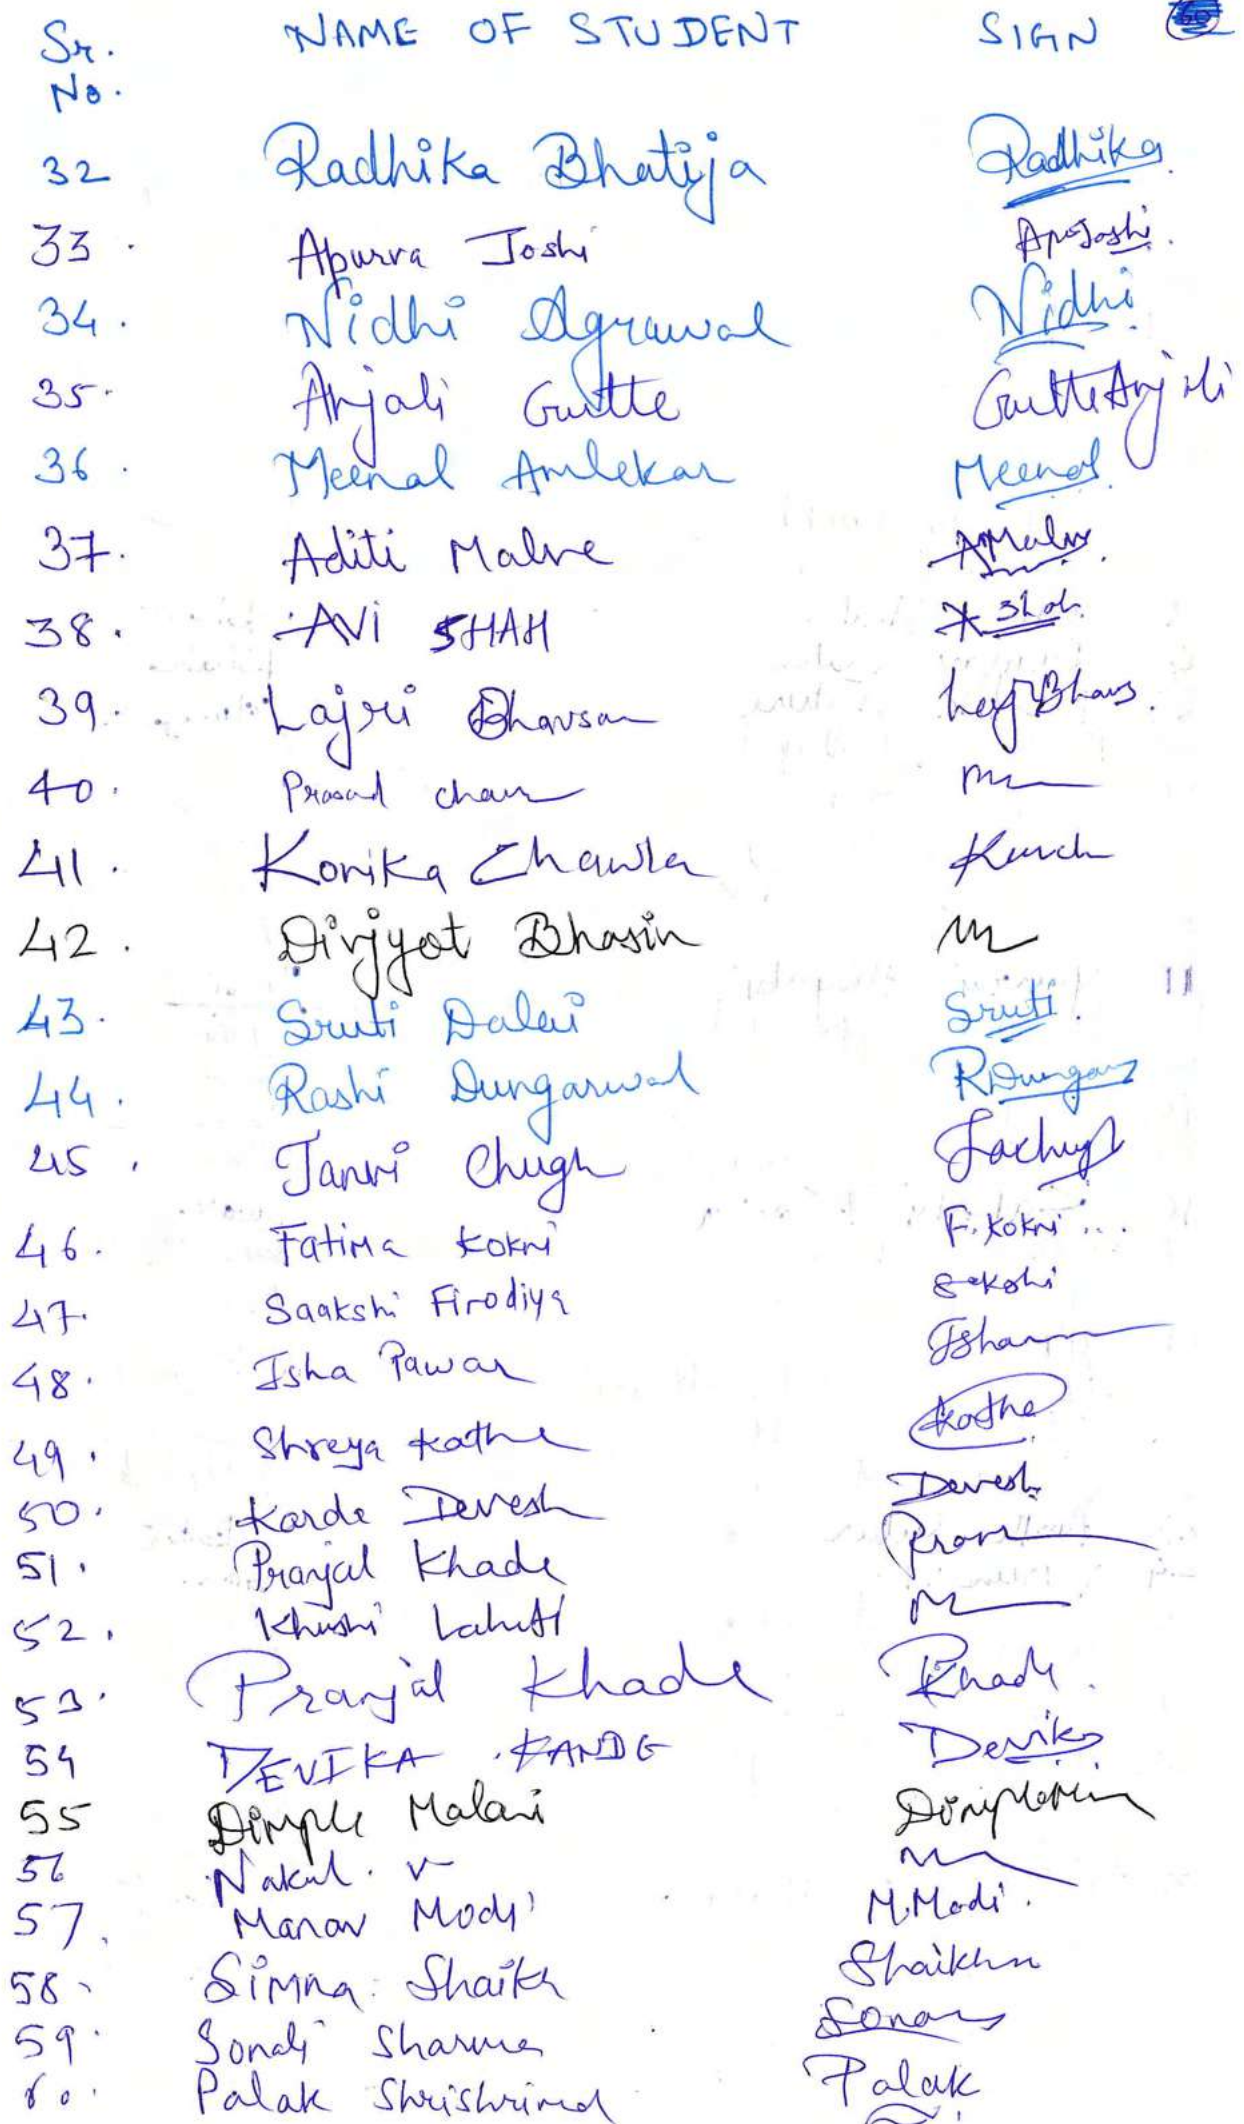 Sr. NAME OF STUDENT SIGN 60
No.
32 Radhika Bhatija Radhika
33. Apurva Joshi ApJoshi.
34. Nidhi Agrawal Nidhi
35. Anjali Guitte Guitte Anjali
36. Meenal Amlekar Meenal
37. Aditi Malve AMalv
38. AVi SHAH A Shah
39. Lajri Bhavsar LajBhavs.
40. Prasad
41. Konika Chawla
42. Divjyot Bhasin
43. Sruti Dalai Sruti.
44. Rashi Dungarwal RDungar
45. Tanvi Chugh
46. Fatima Kokni F. Kokni...
47. Saakshi Firodiya Sakshi
48. Isha Pawar Isha
49. Shreya Kathe Kathe
50. Karde Devesh Devesh
51. Pranjal Khade Pran
52. Khushi Lahoti
53. Pranjal Khade Khade.
54 DEVIKA KANDE Devika
55 Dimple Malani
56 Nakul. V
57. Manav Modi M.Modi.
58. Simna Shaikh Shaikh
59. Sonali Sharma Sona
60. Palak Palak